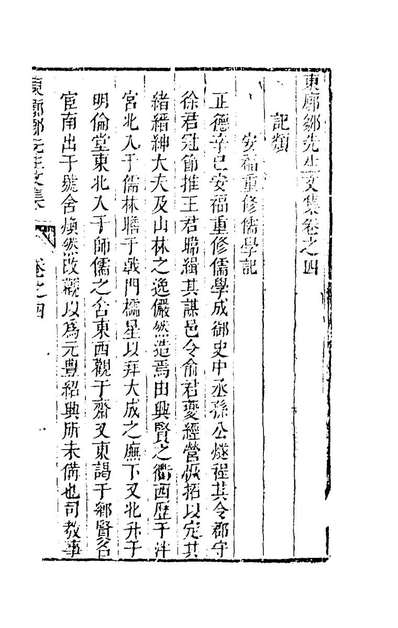 東廓鄒先生文集卷之四
記類
安福重修儒學記
正德辛巳安福重修儒學成御史中丞孫公燧程其令郡守
徐君冠節推王君聯緝其謀邑令俞君夔經營振拓以定其
緒縉紳大夫及山林之逸儼然造焉由興賢之衢西歷于泮
宮北入于儒林瞻于戟門櫺星以拜大成之廡下又北升于
明倫堂東北入于師儒之舍東西觀于齋又東謁于鄉賢名
宦南出于號舍煥然改觀以為元豊紹興所未備也司教事
東廓鄒先生文集 卷之四